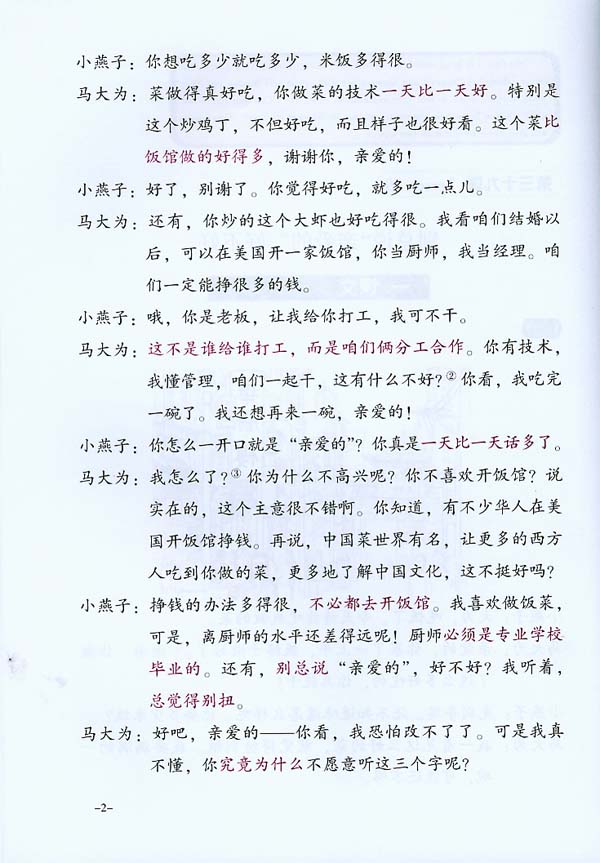 小燕子：你想吃多少就吃多少，米饭多得很。
马大为：菜做得真好吃，你做菜的技术一天比一天好。特别是
这个炒鸡丁，不但好吃，而且样子也很好看。这个菜比
饭馆做的好得多，谢谢你，亲爱的！
小燕子：好了，别谢了。你觉得好吃，就多吃一点儿。
马大为：还有，你炒的这个大虾也好吃得很。我看咱们结婚以
后，可以在美国开一家饭馆，你当厨师，我当经理。咱
们一定能挣很多的钱。
小燕子：哦，你是老板，让我给你打工，我可不干。
马大为：这不是谁给谁打工，而是咱们俩分工合作。你有技术，
我懂管理，咱们一起干，这有什么不好？② 你看，我吃完
一碗了。我还想再来一碗，亲爱的！
小燕子：你怎么一开口就是“亲爱的”？你真是一天比一天话多了。
马大为：我怎么了？③ 你为什么不高兴呢？你不喜欢开饭馆？说
实在的，这个主意很不错啊。你知道，有不少华人在美
国开饭馆挣钱。再说，中国菜世界有名，让更多的西方
人吃到你做的菜，更多地了解中国文化，这不挺好吗？
小燕子：挣钱的办法多得很，不必都去开饭馆。我喜欢做饭菜，
可是，离厨师的水平还差得远呢！厨师必须是专业学校
毕业的。还有，别总说“亲爱的”，好不好？我听着，
总觉得别扭。
马大为：好吧，亲爱的——你看，我恐怕改不了了。可是我真
不懂，你究竟为什么不愿意听这三个字呢？
–2–